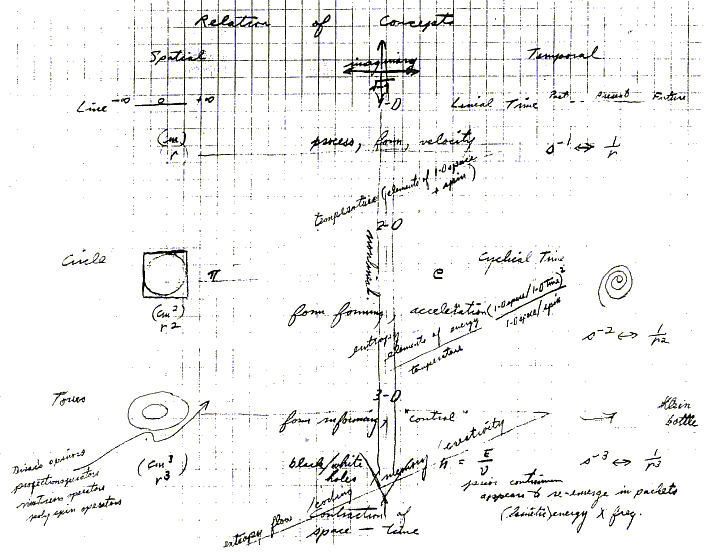 Relation of Concepts
Spatial
imaginary
Temporal
Line -∞ 0 +∞
1-D
Linial Time Past -- Present Future
(cm)
r
process, form, velocity
s⁻¹ ⇔ 1/r
temperature (elements of 1-D space + spin)
2-D
nonlinial
Circle
π
e
Cyclical Time
(cm²)
r2
form forming, acceleration (1-D space/1-D time)²
1-D space/spin
entropy
elements of energy
temperature
s⁻² ⇔ 1/r2
3-D
Torus
form informing, "control"
Klein bottle
Dirac spinors
projection operators
poly spin operators
(cm³)
r³
black/white holes
memory/creativity
ħ = E/ν
s⁻³ ⇔ 1/r³
spin continuum
appears to re-emerge in packets
energy X freq.
entropy flow /coding
contraction of
space - time